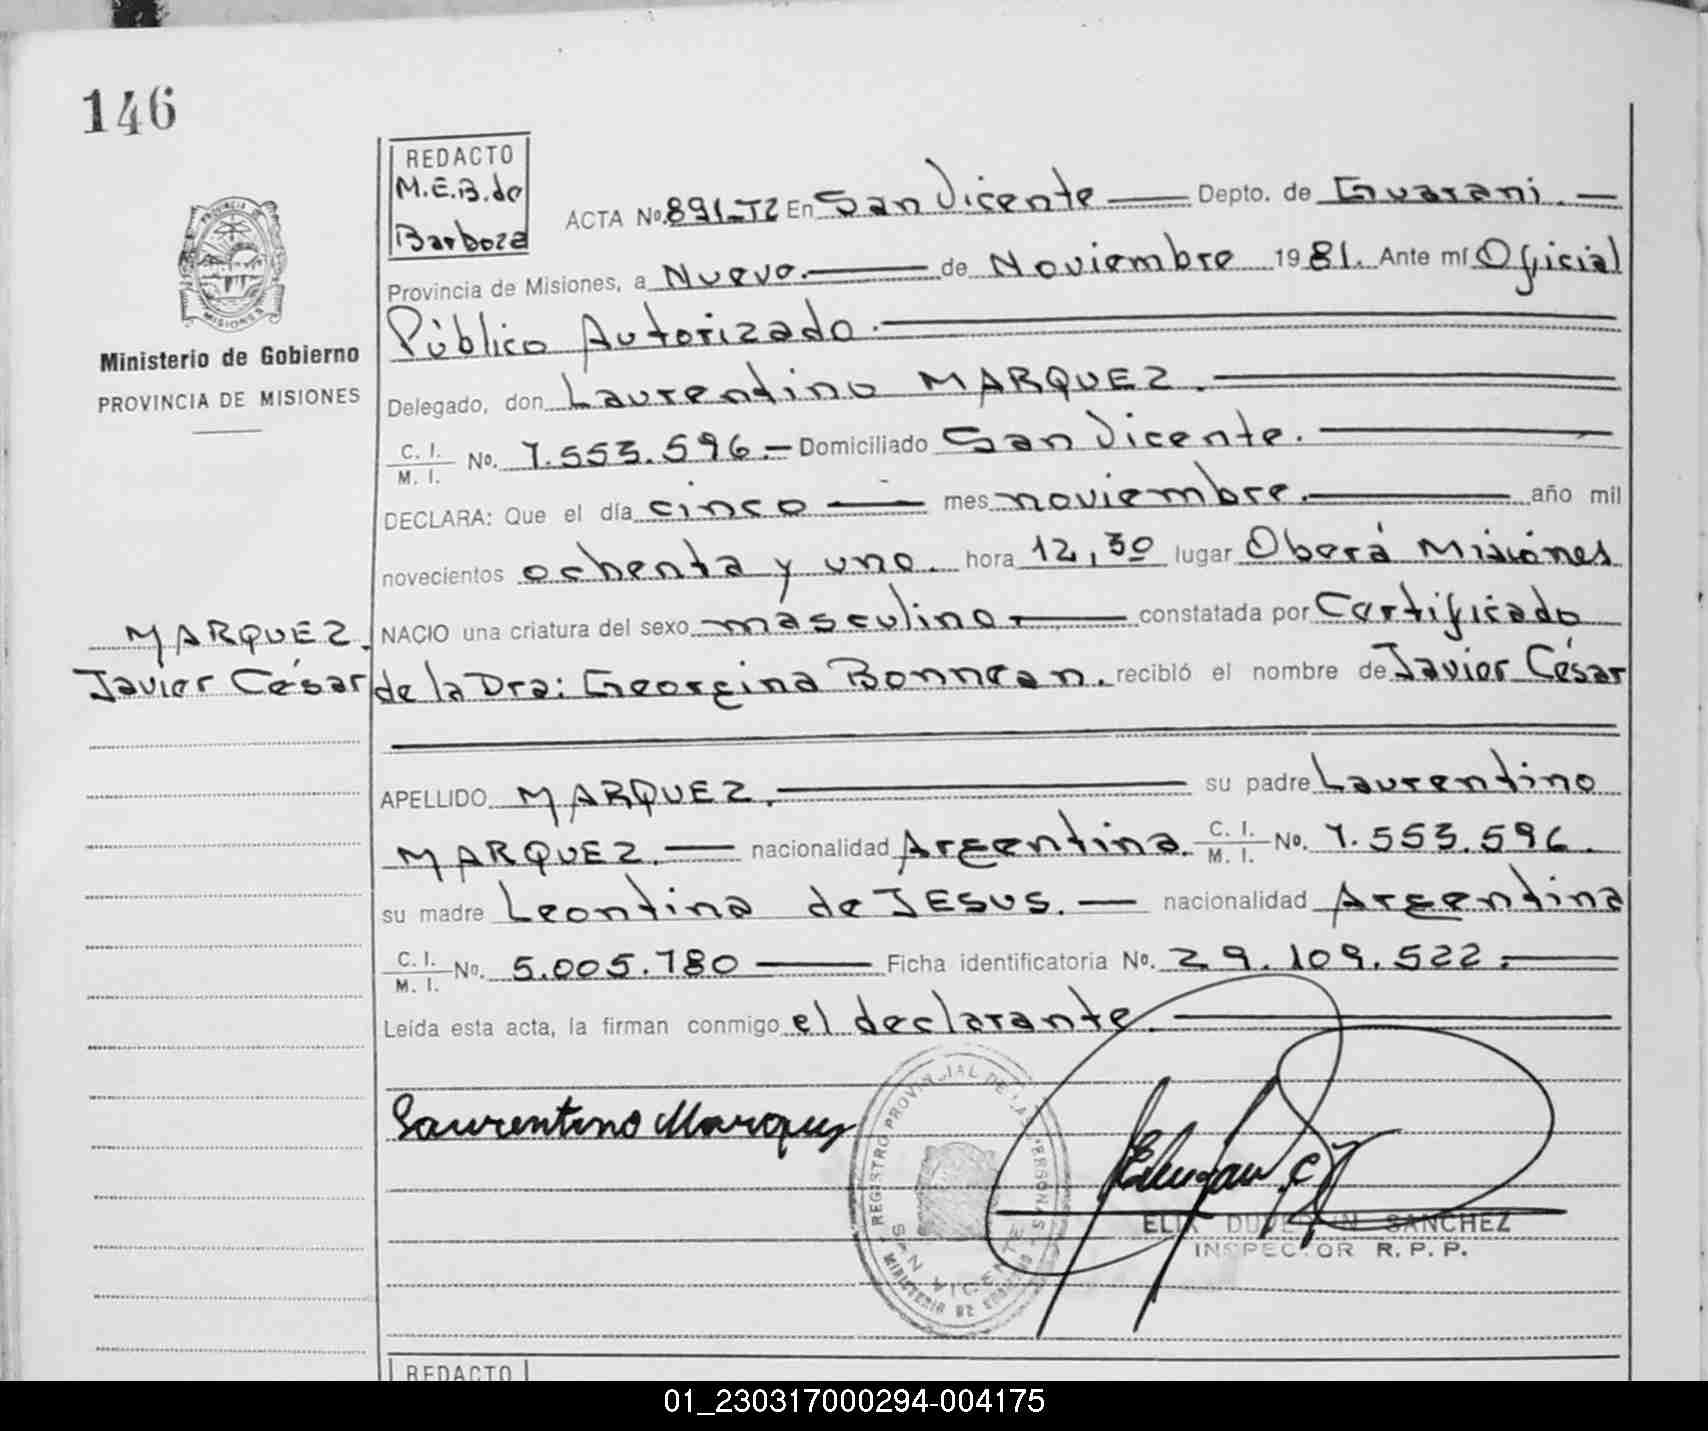 146
REDACTO
M.E.B. de
Barboza
ACTA No. 891-T2 En San Vicente Depto. de Guarani.
Provincia de Misiones, a Nueve. de Noviembre 1981. Ante mí Oficial
Público Autorizado.
Ministerio de Gobierno
PROVINCIA DE MISIONES
Delegado, don Laurentino MARQUEZ.
C. I.
M. I. No. 7.553.596.- Domiciliado San Vicente.
DECLARA: Que el día cinco mes noviembre. año mil
novecientos ochenta y uno. hora 12,30 lugar Oberá Misiones
MARQUEZ.
Javier César
NACIO una criatura del sexo masculino. constatada por Certificado
de la Dra: Georgina Bonnean. recibió el nombre de Javier César
APELLIDO MARQUEZ. su padre Laurentino
MARQUEZ. nacionalidad Argentina. C. I.
M. I. No. 7.553.596.
su madre Leontina de JESUS. nacionalidad Argentina
C. I.
M. I. No. 5.005.780 Ficha identificatoria No. 29.109.522.
Leída esta acta, la firman conmigo el declarante.
Laurentino Marquez
REGISTRO PROVINCIAL DE LAS PERSONAS
SAN VICENTE
MINISTERIO DE GOBIERNO
SANCHEZ
INSPECTOR R. P. P.
REDACTO
01_230317000294-004175